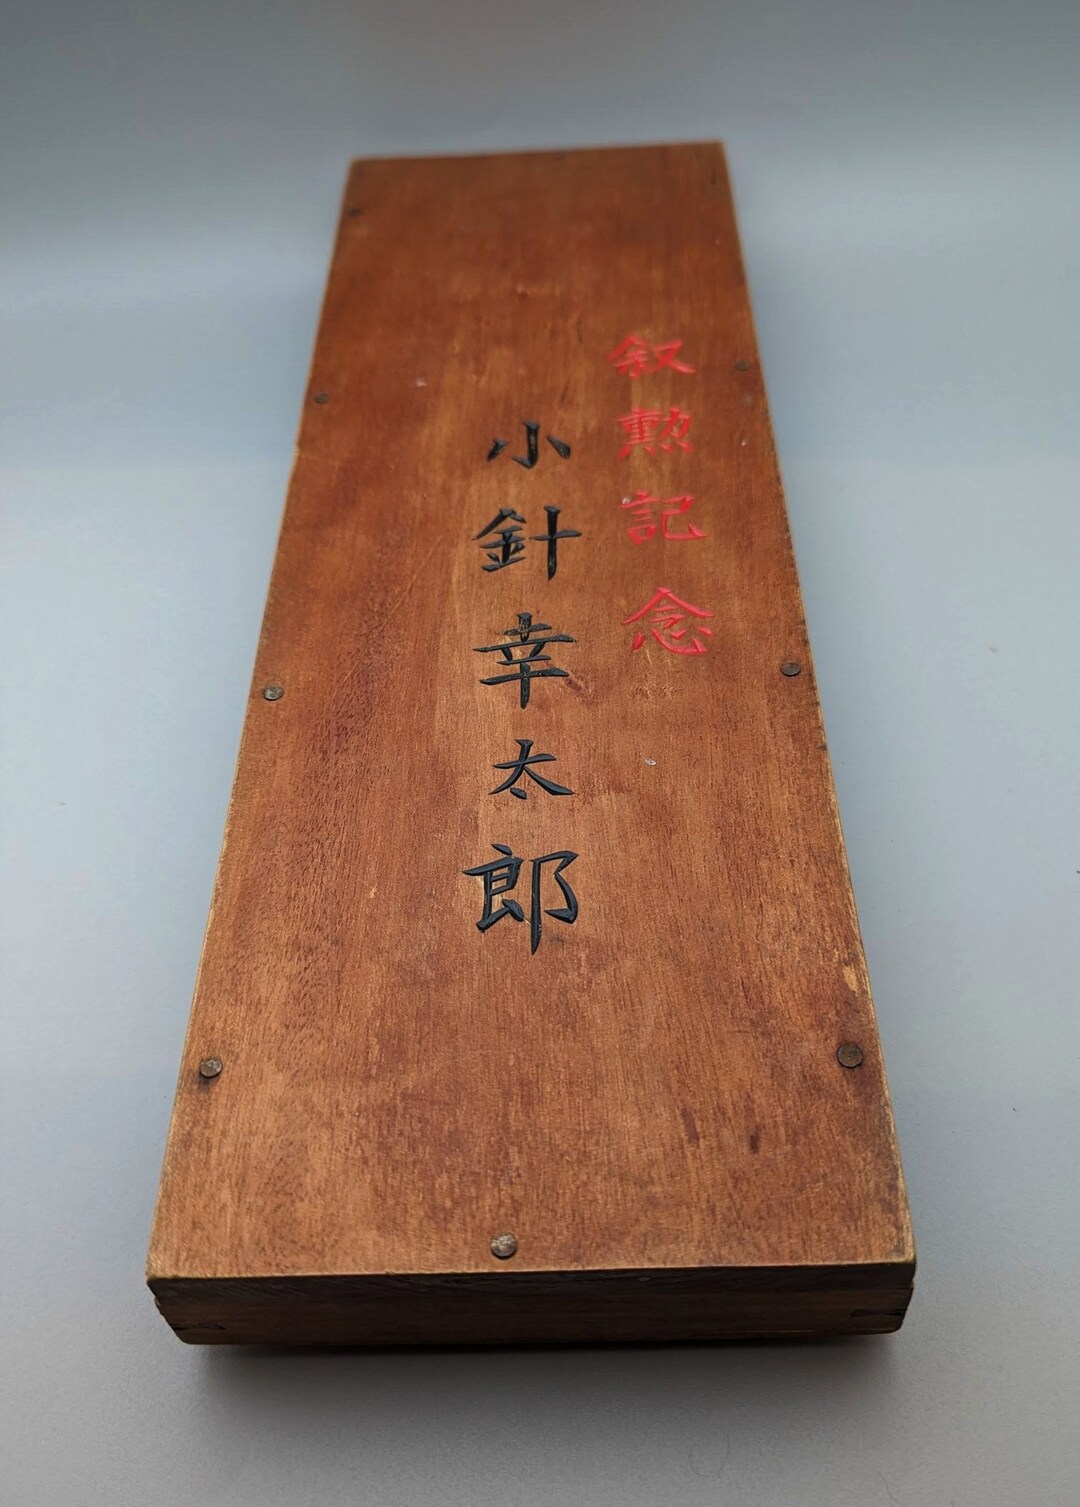 叙勲記念
小針幸太郎